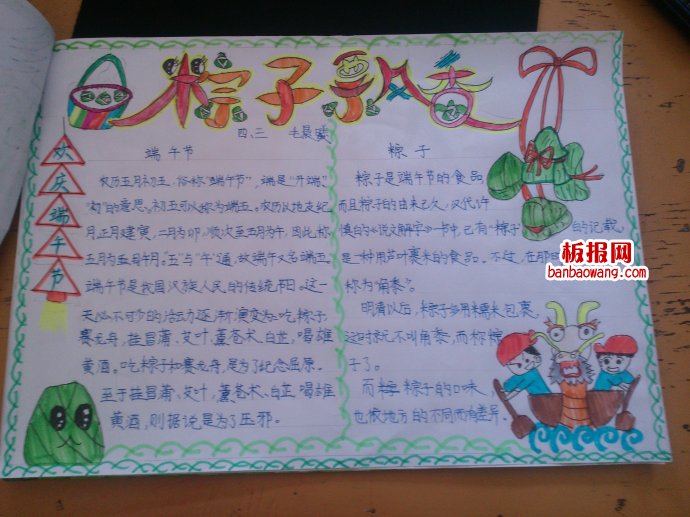 粽子飘香
四、三 毛晨
欢庆端午节
端午节
农历五月初五,俗称"端午节",端是"开端"
"初"的意思。初五可以称为端五。农历以地支纪
月正月建寅,二月为卯,顺次至五月为午,因此称
五月为午月。"五"与"午"通,故端午又名端五。
端午节是我国汉族人民的传统节日。这一
天必不可少的活动逐渐演变为:吃粽子,
赛龙舟,挂菖蒲、艾叶,薰苍术、白芷,喝雄
黄酒。吃粽子和赛龙舟,是为了纪念屈原。
至于挂菖蒲、艾叶,薰苍术、白芷,喝雄
黄酒,则据说是为了压邪。
粽子
粽子是端午节的食品
而且粽子的由来已久,汉代许
慎的《说文解字》一书中,已有"粽子 的记载,
是一种用芦叶裹米的食品。不过,在那
称为"角黍"。
明清以后,粽子多用糯米包裹,
这时就不叫角黍,而称粽
子了。
而 粽子的口味,
也依地方的不同而有差异。
板报网
banbaowang.com